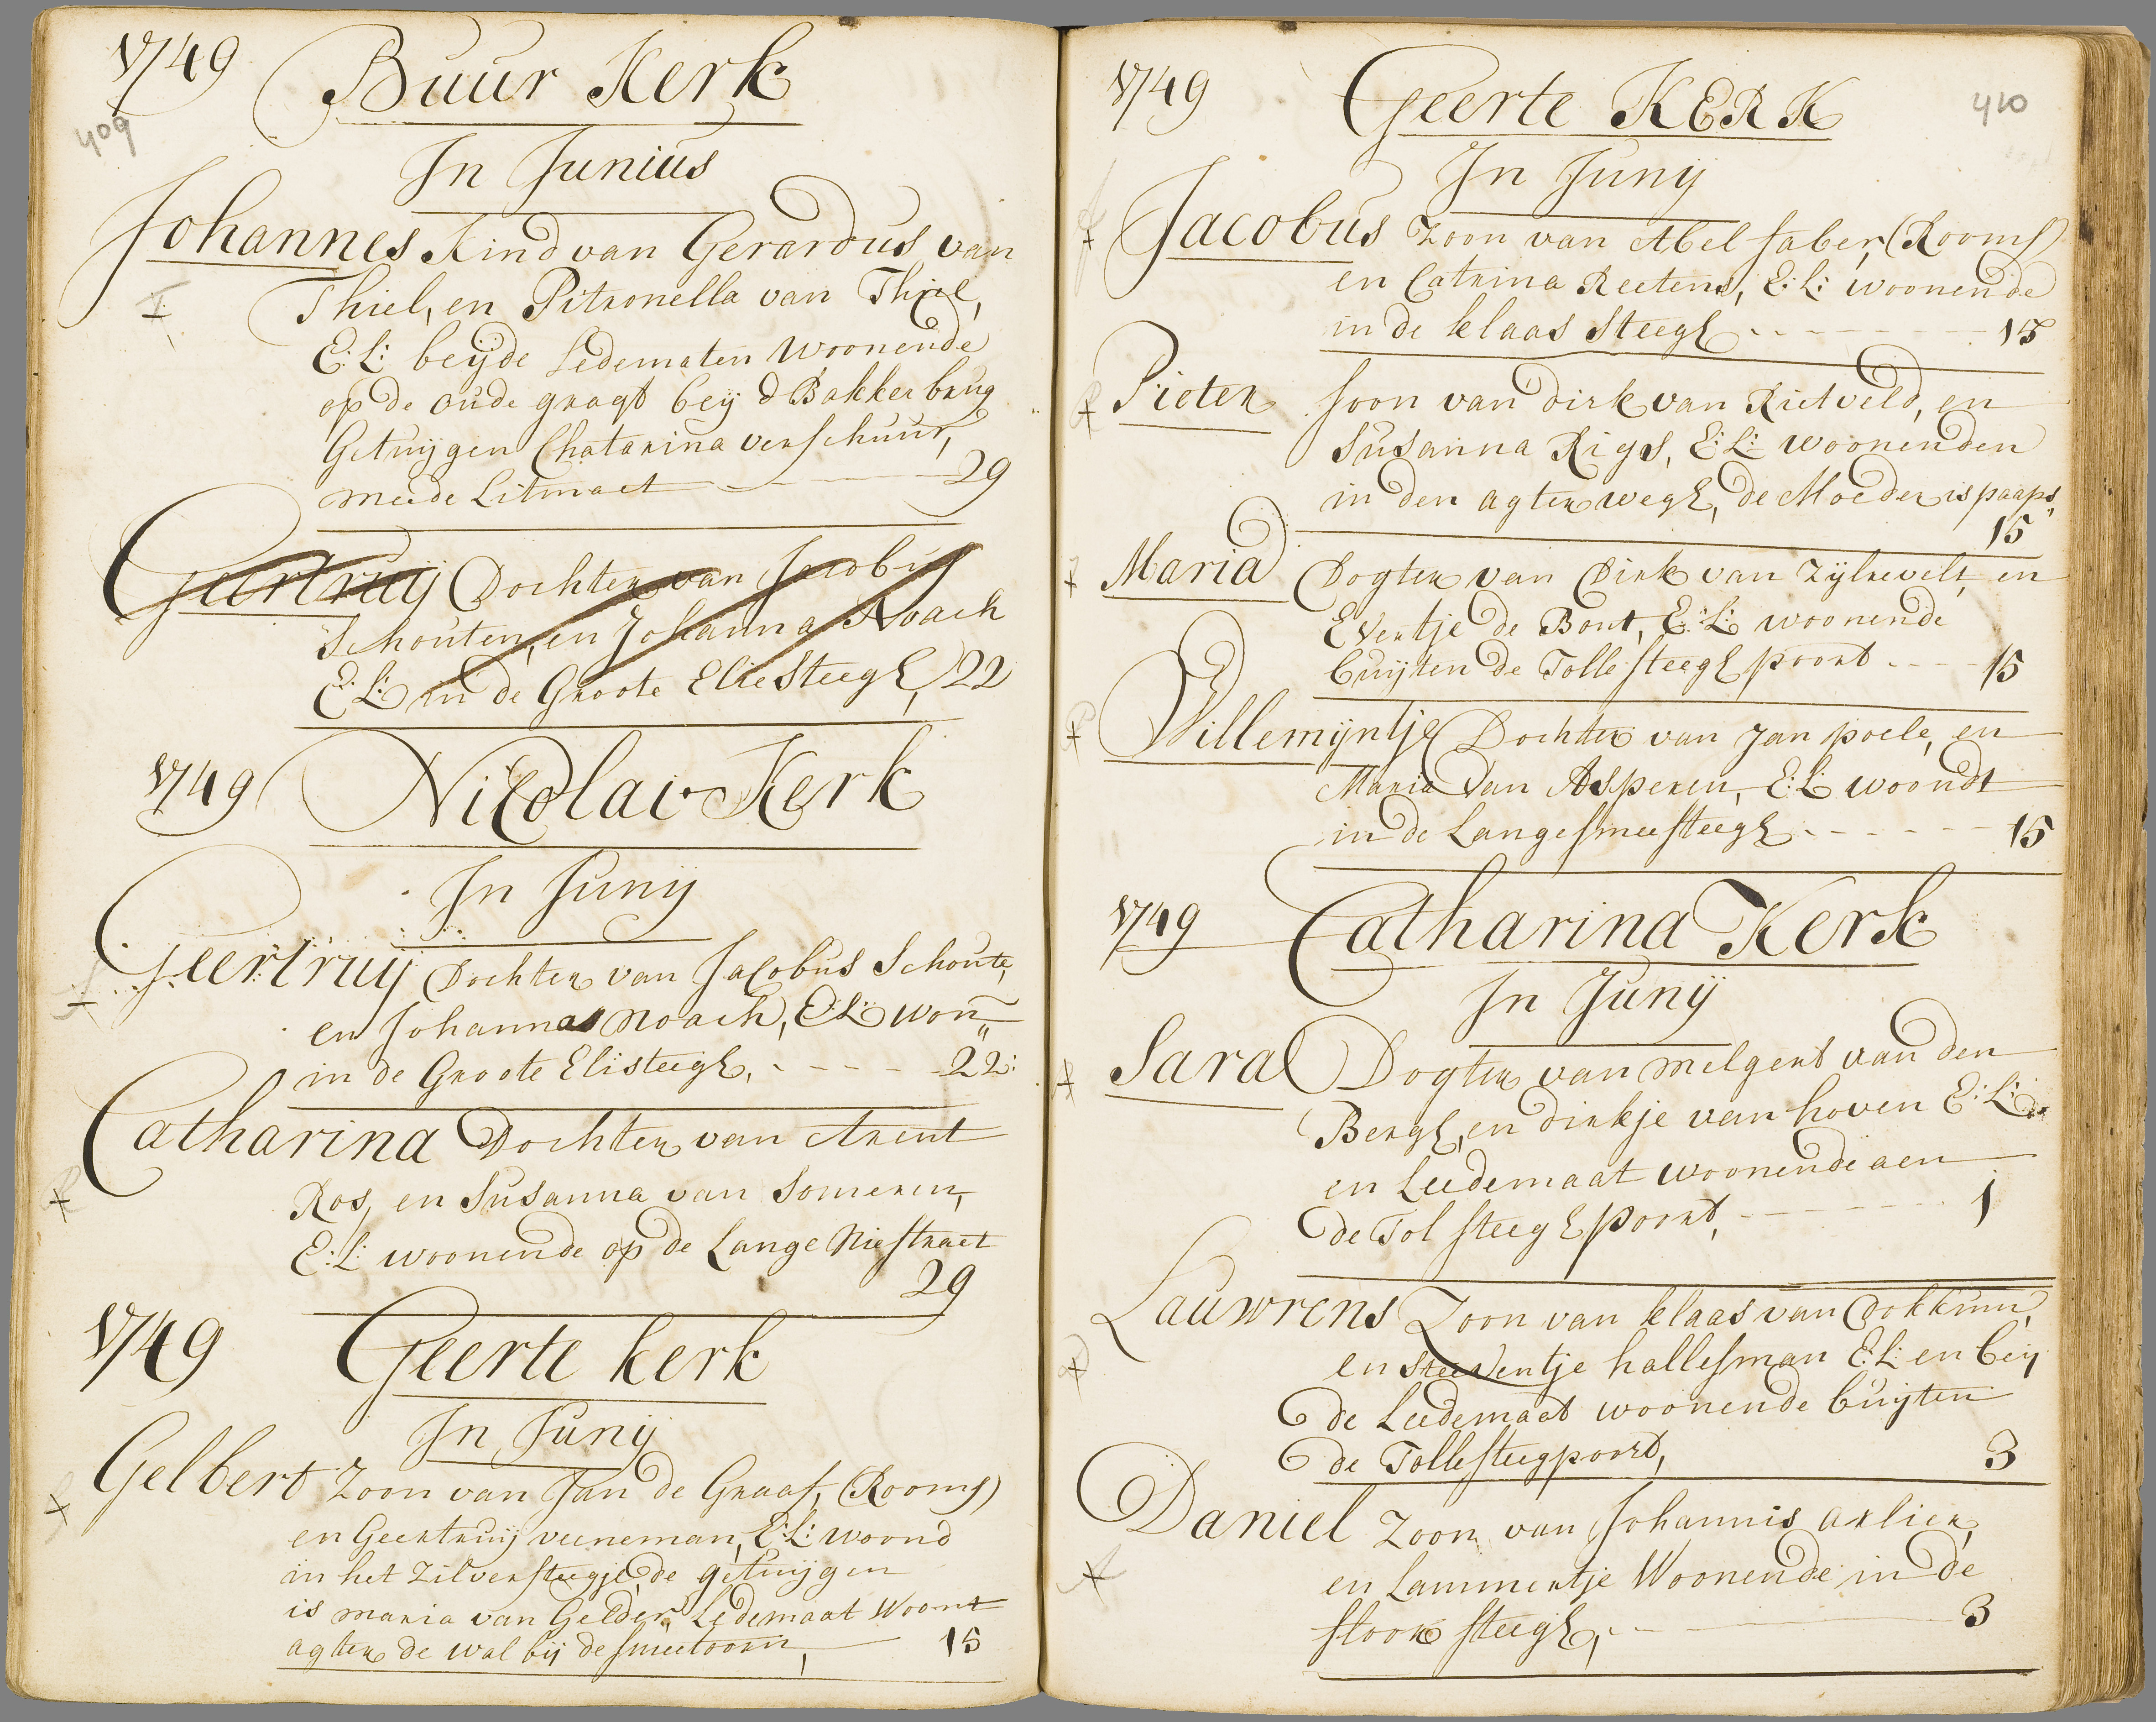 1749 Buur Kerk
409
In Junius
Johannes Kind van Gerardus van
Thiel, en Pitronella van Thiel,
E: L: beyde Ledematen Woonende
op de oude gragt bey d Bakker brug
Getuijgen Chatarina verschuur,
meede Litmaet 29
Geertruij Dochter van Jacobus
Schouten, en Johanna Noach
E: L: in de Groote Elie Steegh, 22
1749 Nicolai Kerk
In Junij
Geertruij Dochter van Jacobus Schoute,
en Johanna Noach, E: L: won
in de Groote Elisteegh, 22:
Catharina Dochter van Arent
Ros, en Susanna van Someren,
E: L: woonende op de Lange Niestraet
29
1749 Geerte kerk
In Junij
Gelbert Zoon van Jan de Graaf, (Rooms)
en Geertruij veeneman, E: L: woond
in het Zilversteegje, de getuijgen
is maria van Gelder, Ledemaat Woont
agter de wal bij de smeetoorn, 15
1749 Geerte KERK 410
In Junij
Jacobus Zoon van Abel faber, (Rooms)
en Catrina Reetens, E: L: woonende
in de klaas Steegh 15
Pieter soon van dirk van Rietveld, en
Susanna Rigs, E: L: woonenden
in den agter wegh, de Moeder is paaps,
15
Maria Dogter van Dirk van Zijlrevelt, en
Evertje de Bont, E: L: woonende
buijten de Tolle steegh poort 15
Willemijntje Dochter van Jan poele, en
Maria Van Asperen, E: L: woondt
in de Lange smeesteegh 15
1749 Catharina Kerk
In Junij
Sara Dogter van melgert van den
Bergh, en dirkje van hoven E: L:
en Leedemaat woonende aen
de Tol steegh poort, 1
Lauwrens Zoon van klaas van Dokkum,
en Steeventje hallesman E: L: en bey
de Leedemaet woonende buijten
de Tollesteegpoort, 3
Daniel Zoon van Johannis arlier,
en Lammertje Woonende in de
stoor steegh, 3